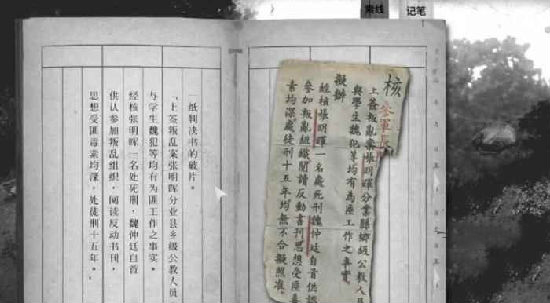 索线
记笔
一纸判决书的破片。
「上签叛乱案张明晖分业县乡级公教人员
与学生魏犯等均有为匪工作之事实。
经核张明晖一名处死刑，魏仲廷自首
供认参加叛乱组织，阅读反动书刊，
思想受匪毒素均深，处徒刑十五年。
核
参軍長
上簽叛亂案張明暉分業縣鄉級公教人員
與學生魏犯等均有為匪工作之事實
擬辦
經核張明暉一名處死刑魏仲廷自首供認
參加叛亂組織閱讀反動書刊思想受匪毒
素均深處徒刑十五年均無不合擬照准